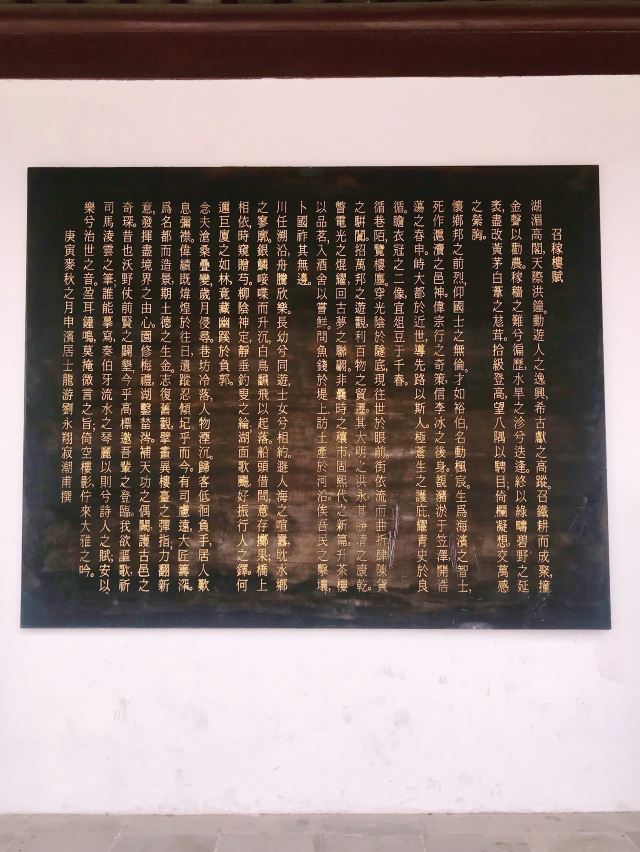 召稼樓賦
湖湄高閣,天際洪鐘。動遊人之逸興,希古獻之高蹤。召鐵耕而成聚,撞
金聲以勸農。稼穡之難兮徧歷,水旱之沴兮迭逢。終以綠疇碧野之延
袤,盡改黃茅白葦之 茸。拾級登高,望八隅以騁目;倚欄凝想,交萬感
之縈胸。
懷鄉邦之前烈,仰國士之無倫。才如裕伯,名動楓宸。生爲海濱之智士,
死作滬瀆之邑神。偉宗行之奇策,信李冰之後身。觀瀦淤于笠澤,開浩
蕩之春申。峙大都於近世,導先路以斯人。極蒼生之護庇,耀青史於良
循。瞻衣冠之二像,宜俎豆于千春。
循巷陌,覽樓廛。穿光陰於隧底,現往世於眼前。街依流而曲折,肆陳貨
之駢闐。招萬邦之遊觀,利百物之貿遷。其大明之洪永,其勝清之康乾。
瞥電光之焜耀,回古夢之聯翩。非曩時之穰市,固熙代之新篇。升茶樓
以品茗,入酒舍以嘗鮮。問魚錢於堤上,訪土產於河沿。俟吾民之擊壤,
卜國祚其無邊。
川任溯沿,舟騰欣樂。長幼兮同遊,士女兮相約。避人海之喧囂,耽水鄉
之寥廓。銀鱗唼喋而升沉,白鳥飄飛以起落。船頭借問,意存擲果。橋上
相依,時窺贈芍。柳陰神定,靜垂釣叟之綸;湖面歌飄,好振行人之鐸。何
邇巨廈之如林,竟藏幽蹊於負郭。
念夫滄桑疊變,歲月侵尋。巷坊冷落,人物煙沉。歸客低徊負手,居人歎
息彌襟。偉績既煒煌於往日,遺蹤忍傾圮乎而今。有司慮遠,大匠籌深。
爲名都而造景,期土德之生金。志復舊觀,擘畫異樓臺之彈指;力翻新
意,發揮盡境界之由心。園修梅禮,湖鑿 潯。補天功之偶闕,護古邑之
奇琛。昔也沃野仗前賢之闢墾,今乎高標邀吾輩之登臨。我欲謳歌,祈
司馬凌雲之筆;誰能摹寫,奏伯牙流水之琴。麗以則兮詩人之賦,安以
樂兮治世之音。盈耳鐘鳴,莫掩微言之旨;倚空樓影,佇來大雅之吟。
庚寅麥秋之月申濱居士龍游劉永翔寂潮甫撰